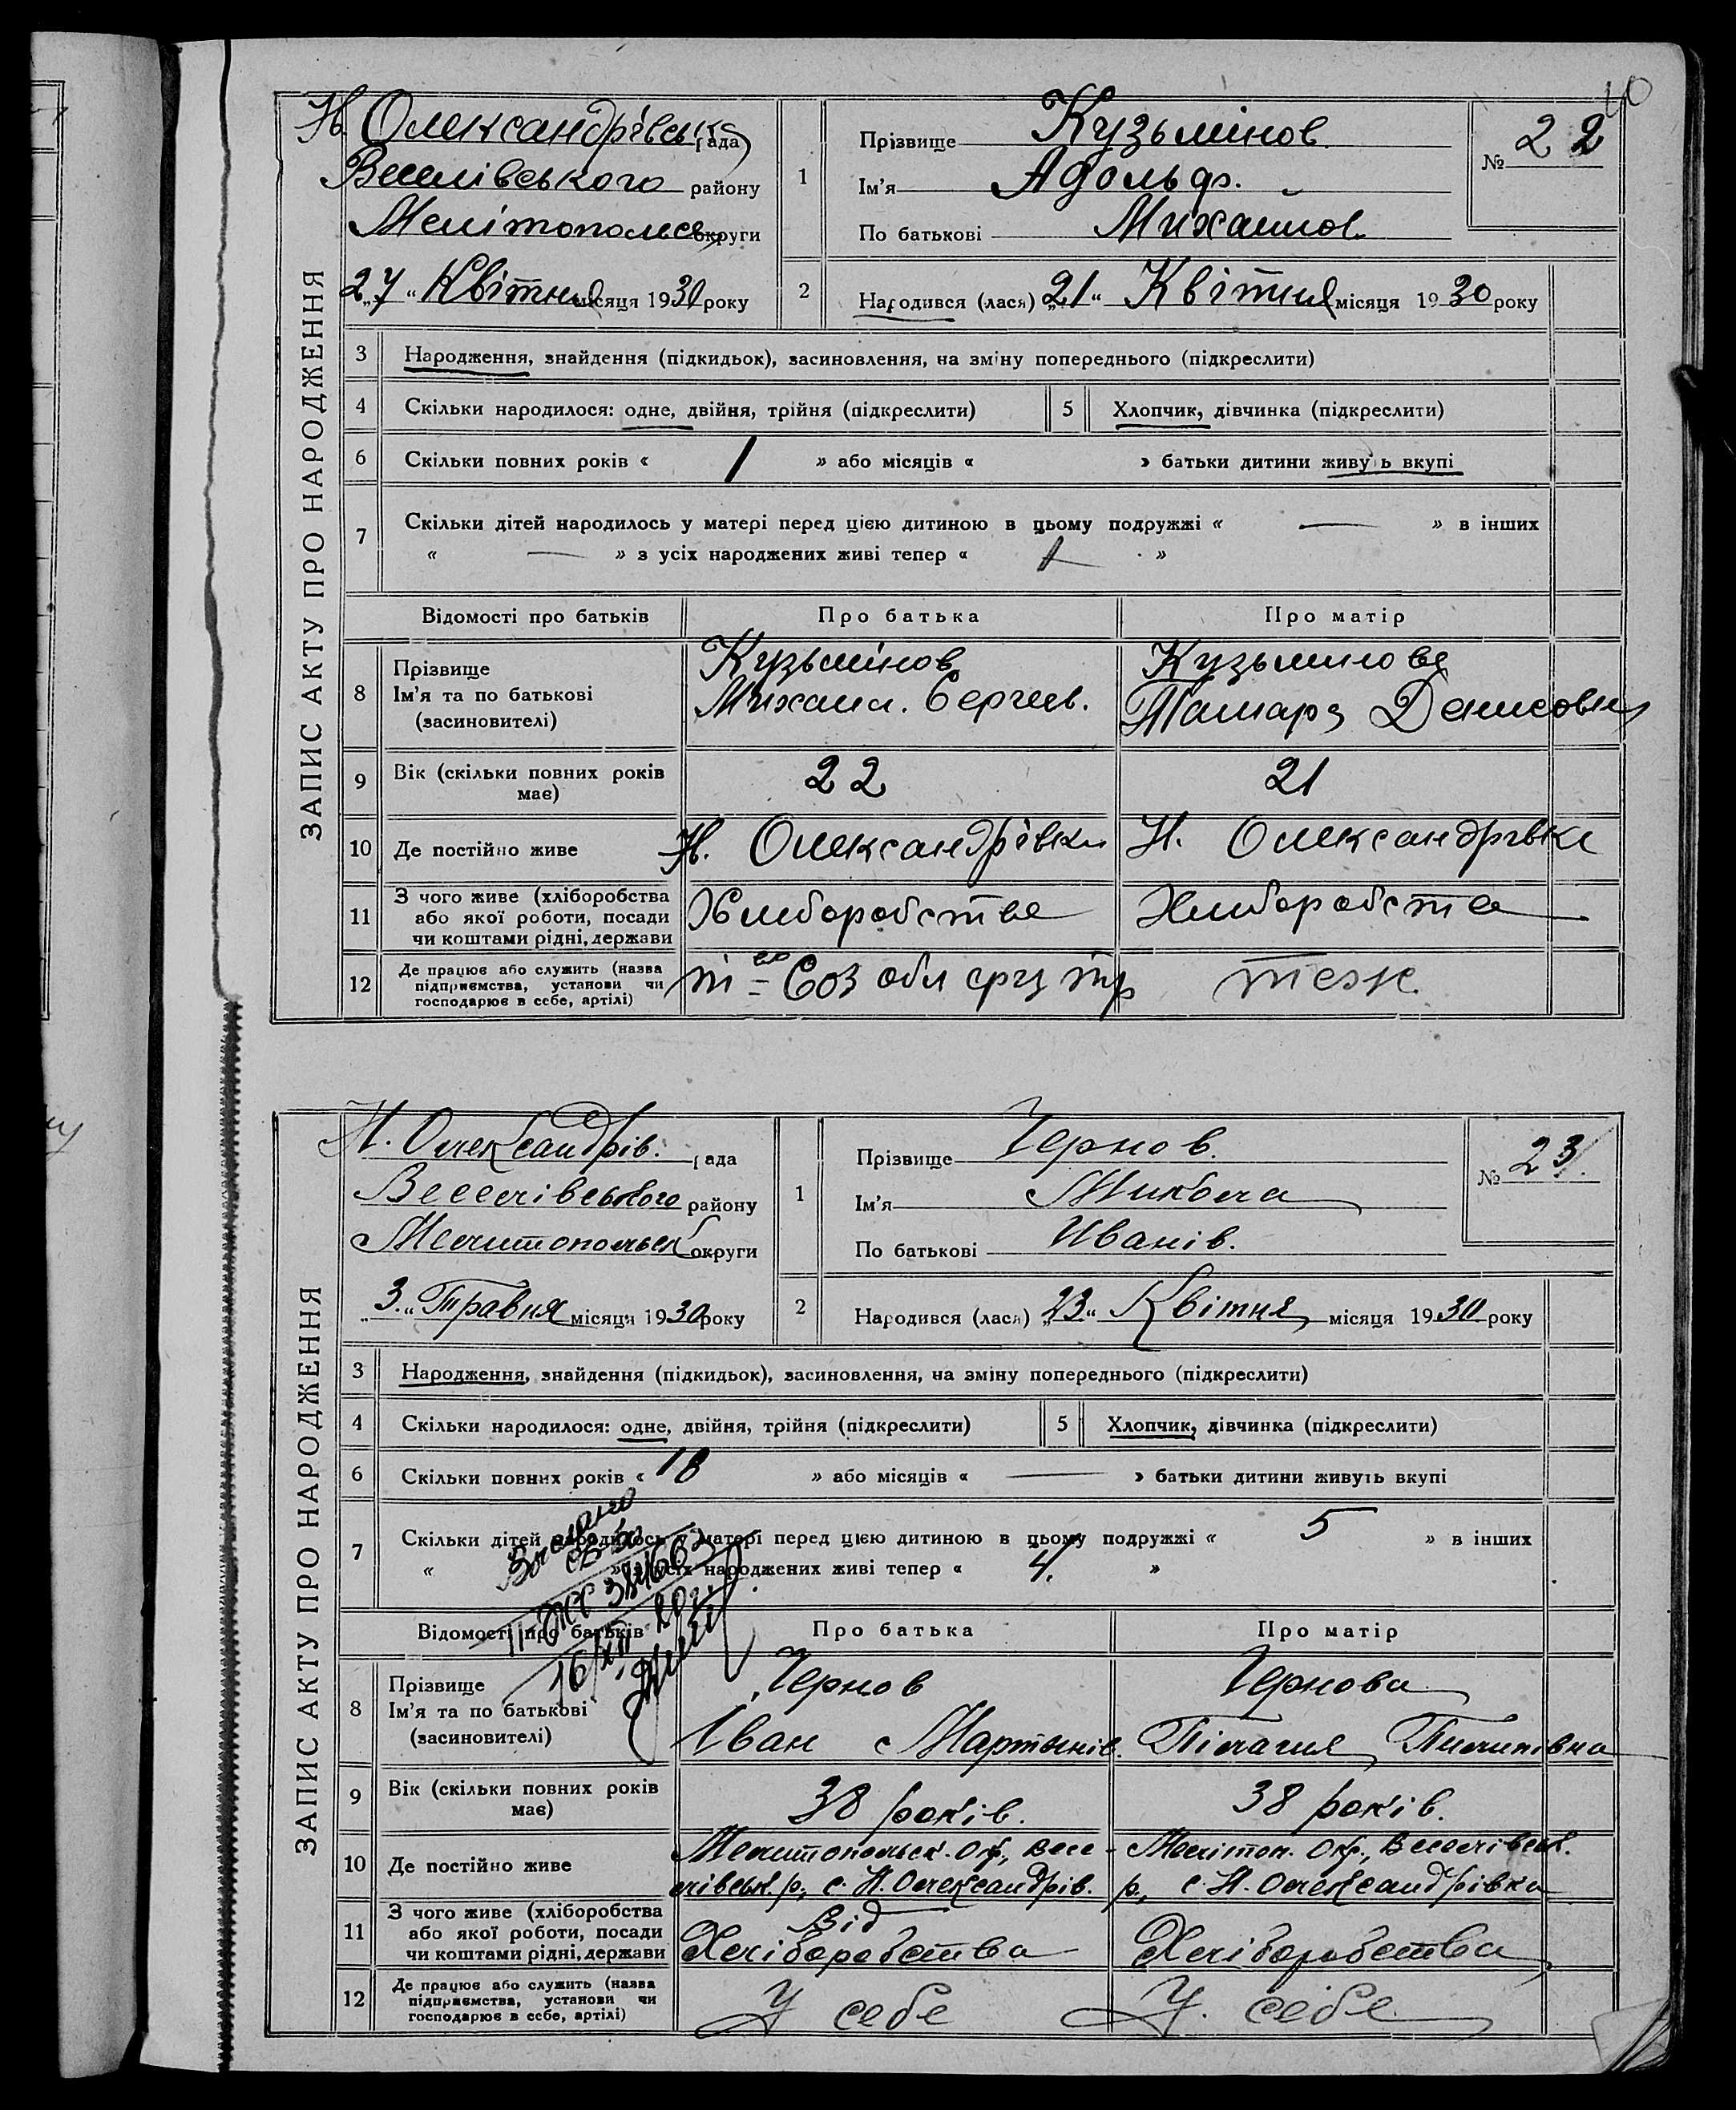 10
ЗАПИС АКТУ ПРО НАРОДЖЕННЯ
Н. Олександрівськ рада
Веселівського району
Мелітопольськ округи
„27“ Квітня місяця 1930 року
1 Прізвище Кузьмінов
Ім'я Адольф.
По батькові Михайлов.
№ 22
2 Народився (лася) „21“ Квітня місяця 1930 року
3 Народження, знайдення (підкидьок), засиновлення, на зміну попереднього (підкреслити)
4 Скільки народилося: одне, двійня, трійня (підкреслити) 5 Хлопчик, дівчинка (підкреслити)
6 Скільки повних років « 1 » або місяців « » батьки дитини живуть вкупі
7 Скільки дітей народилось у матері перед цією дитиною в цьому подружжі « — » в інших
« — » з усіх народжених живі тепер « 1 »
Відомості про батьків Про батька Про матір
8 Прізвище Кузьмінов Кузьминова
Ім'я та по батькові Михаил. Сергеев. Тамара Денисовн
(засиновителі)
9 Вік (скільки повних років має) 22 21
10 Де постійно живе Н. Олександрівки Н. Олександрівка
11 З чого живе (хліборобства
або якої роботи, посади Хлиборобства Хлиборобства
чи коштами рідні, держави
12 Де працює або служить (назва
підприємства, установи чи Соз теж
господарює в себе, артілі)
ЗАПИС АКТУ ПРО НАРОДЖЕННЯ
Н. Олександрів. рада
Веселівського району
Мелитопольськ округи
„3.“ Травня місяця 1930 року
1 Прізвище Чернов.
Ім'я Микола
По батькові Иванів.
№ 23
2 Народився (лася) „23“ Квітня місяця 1930 року
3 Народження, знайдення (підкидьок), засиновлення, на зміну попереднього (підкреслити)
4 Скільки народилося: одне, двійня, трійня (підкреслити) 5 Хлопчик, дівчинка (підкреслити)
6 Скільки повних років « 18 » або місяців « — » батьки дитини живуть вкупі
7 Скільки дітей народилось у матері перед цією дитиною в цьому подружжі « 5 » в інших
« » з усіх народжених живі тепер « 4. »
Відомості про батьків Про батька Про матір
8 Прізвище Чернов Чернова
Ім'я та по батькові Іван Мартынів. Пілагия Пилипівна
(засиновителі)
9 Вік (скільки повних років має) 38 років. 38 років.
10 Де постійно живе Мелитопольск. Окр., Весе- Мелітоп. Окр., Веселівськ.
лівськ. р., с. Н. Олександрів. р., с. Н. Олександрівка
11 З чого живе (хліборобства Від
або якої роботи, посади Хліборобства Хліборобства
чи коштами рідні, держави
12 Де працює або служить (назва
підприємства, установи чи У себе У. себе
господарює в себе, артілі)